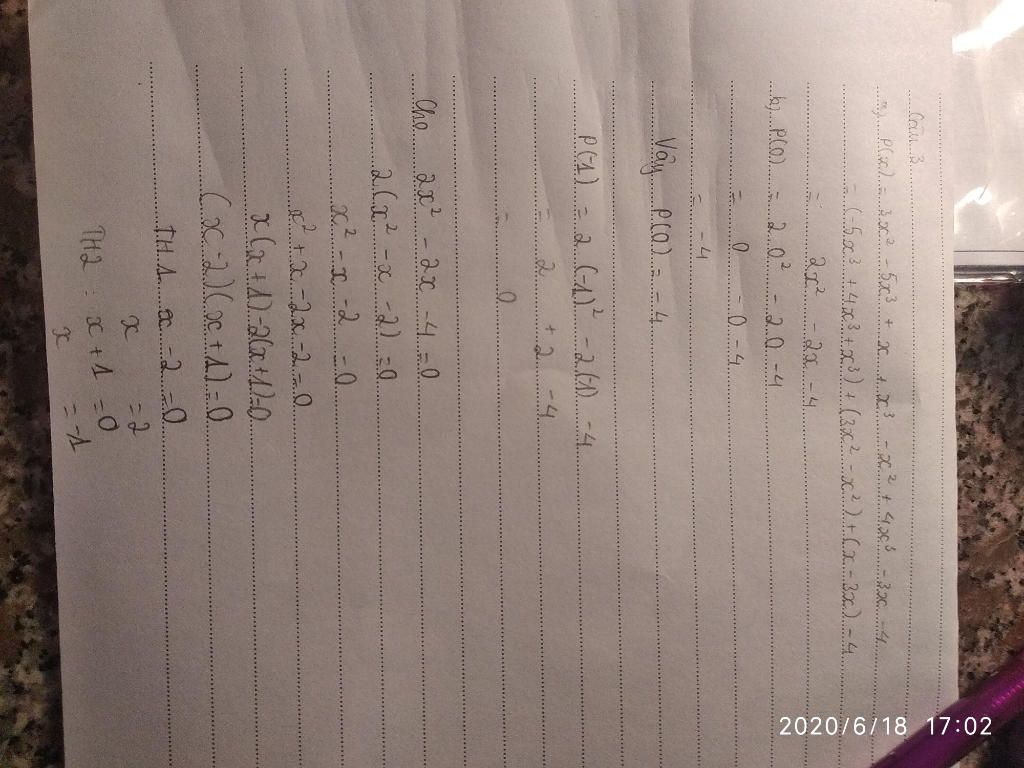 Câu 3
a) P(x) = 3x² - 5x³ + x + x³ - x² + 4x³ - 3x - 4
= (-5x³ + 4x³ + x³) + (3x² - x²) + (x - 3x) - 4
= 2x² - 2x - 4
b) P(0) = 2.0² - 2.0 - 4
= 0 - 0 - 4
= -4
Vậy P(0) = -4
P(-1) = 2.(-1)² - 2.(-1) - 4
= 2 + 2 - 4
= 0
Cho 2x² - 2x - 4 = 0
2(x² - x - 2) = 0
x² - x - 2 = 0
x² + x - 2x - 2 = 0
x(x + 1) - 2(x + 1) = 0
(x - 2)(x + 1) = 0
TH1 x - 2 = 0
x = 2
TH2 : x + 1 = 0
x = -1
2020/6/18 17:02